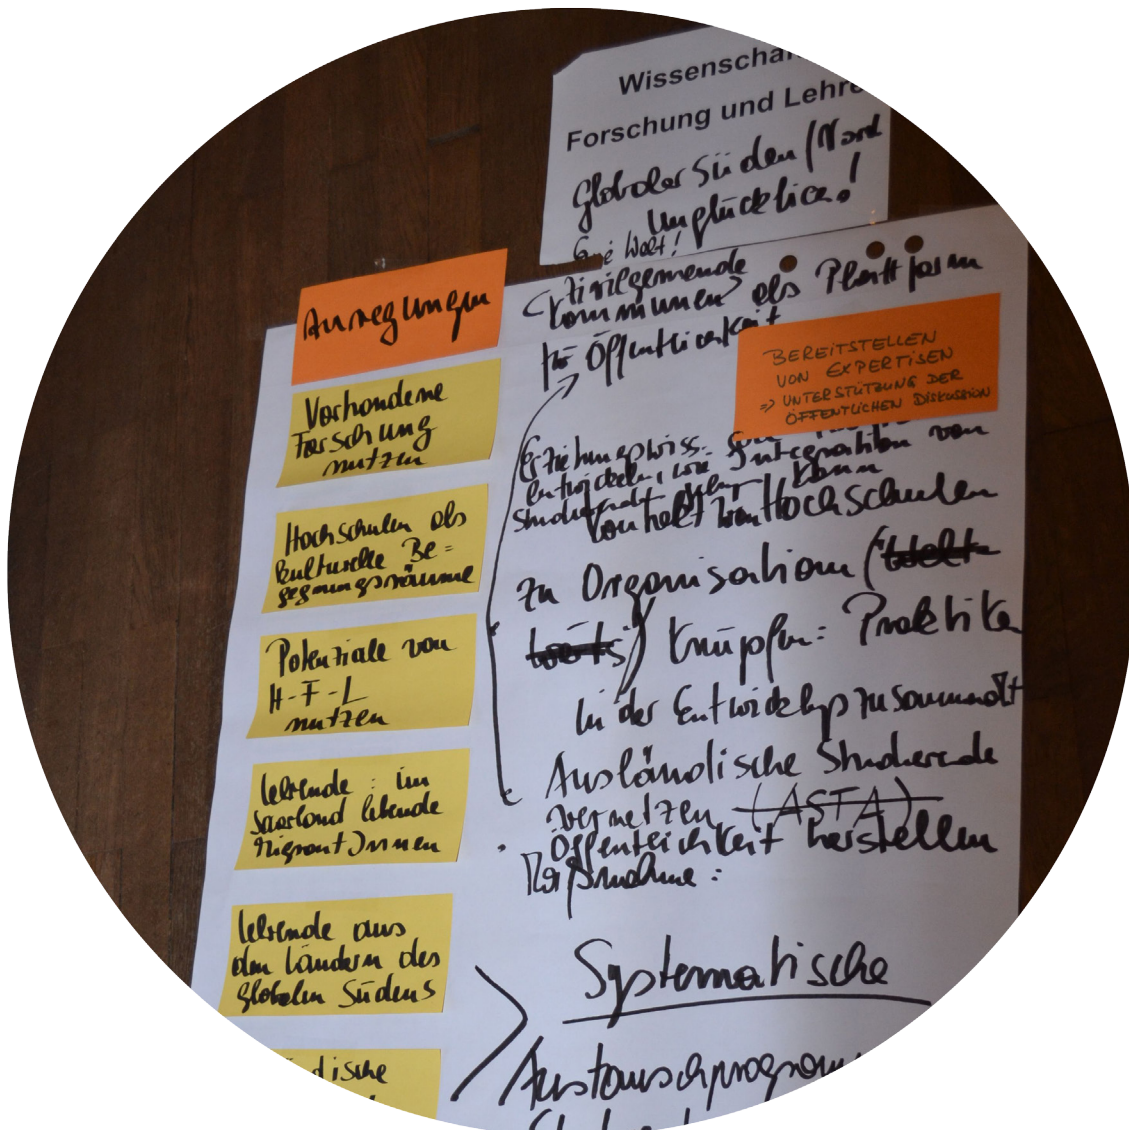 Wissenscha
Forschung und Lehre
Globaler Süden / Nord
Unglücklich!
Eine Welt!
Anregungen
Vorhandene
Forschung
nutzen
Hochschulen als
kulturelle Be-
gegnungsräume
Potenziale von
H-F-L
nutzen
lehrende : im
Saarland lebende
MigrantInnen
lehrende aus
den Ländern des
Globalen Südens
dische
Kommunen als Plattform
für Öffentlichkeit
BEREITSTELLEN
VON EXPERTISEN
=> UNTERSTÜTZUNG DER
ÖFFENTLICHEN DISKUSSION
Erziehungswiss.
entwickeln, wie Integration von
kann
Kontakt von Hochschulen
zu Organisation
knüpfen: Praktika
in der Entwicklgszusammenarbeit
Ausländische Studierende
vernetzen (ASTA)
Öffentlichkeit herstellen
Maßnahme :
Systematische
Austauschprogramm